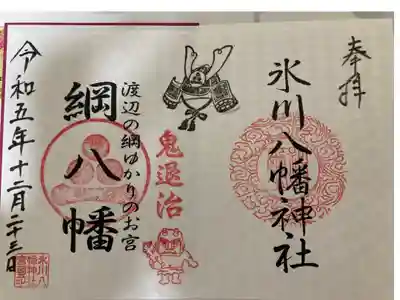 奉拝
氷川八幡神社
鬼退治
渡辺の綱ゆかりのお宮
綱八幡
令和五年十二月二十三日